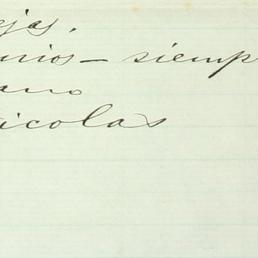 ejas.
nios – siemp
ano
icolas